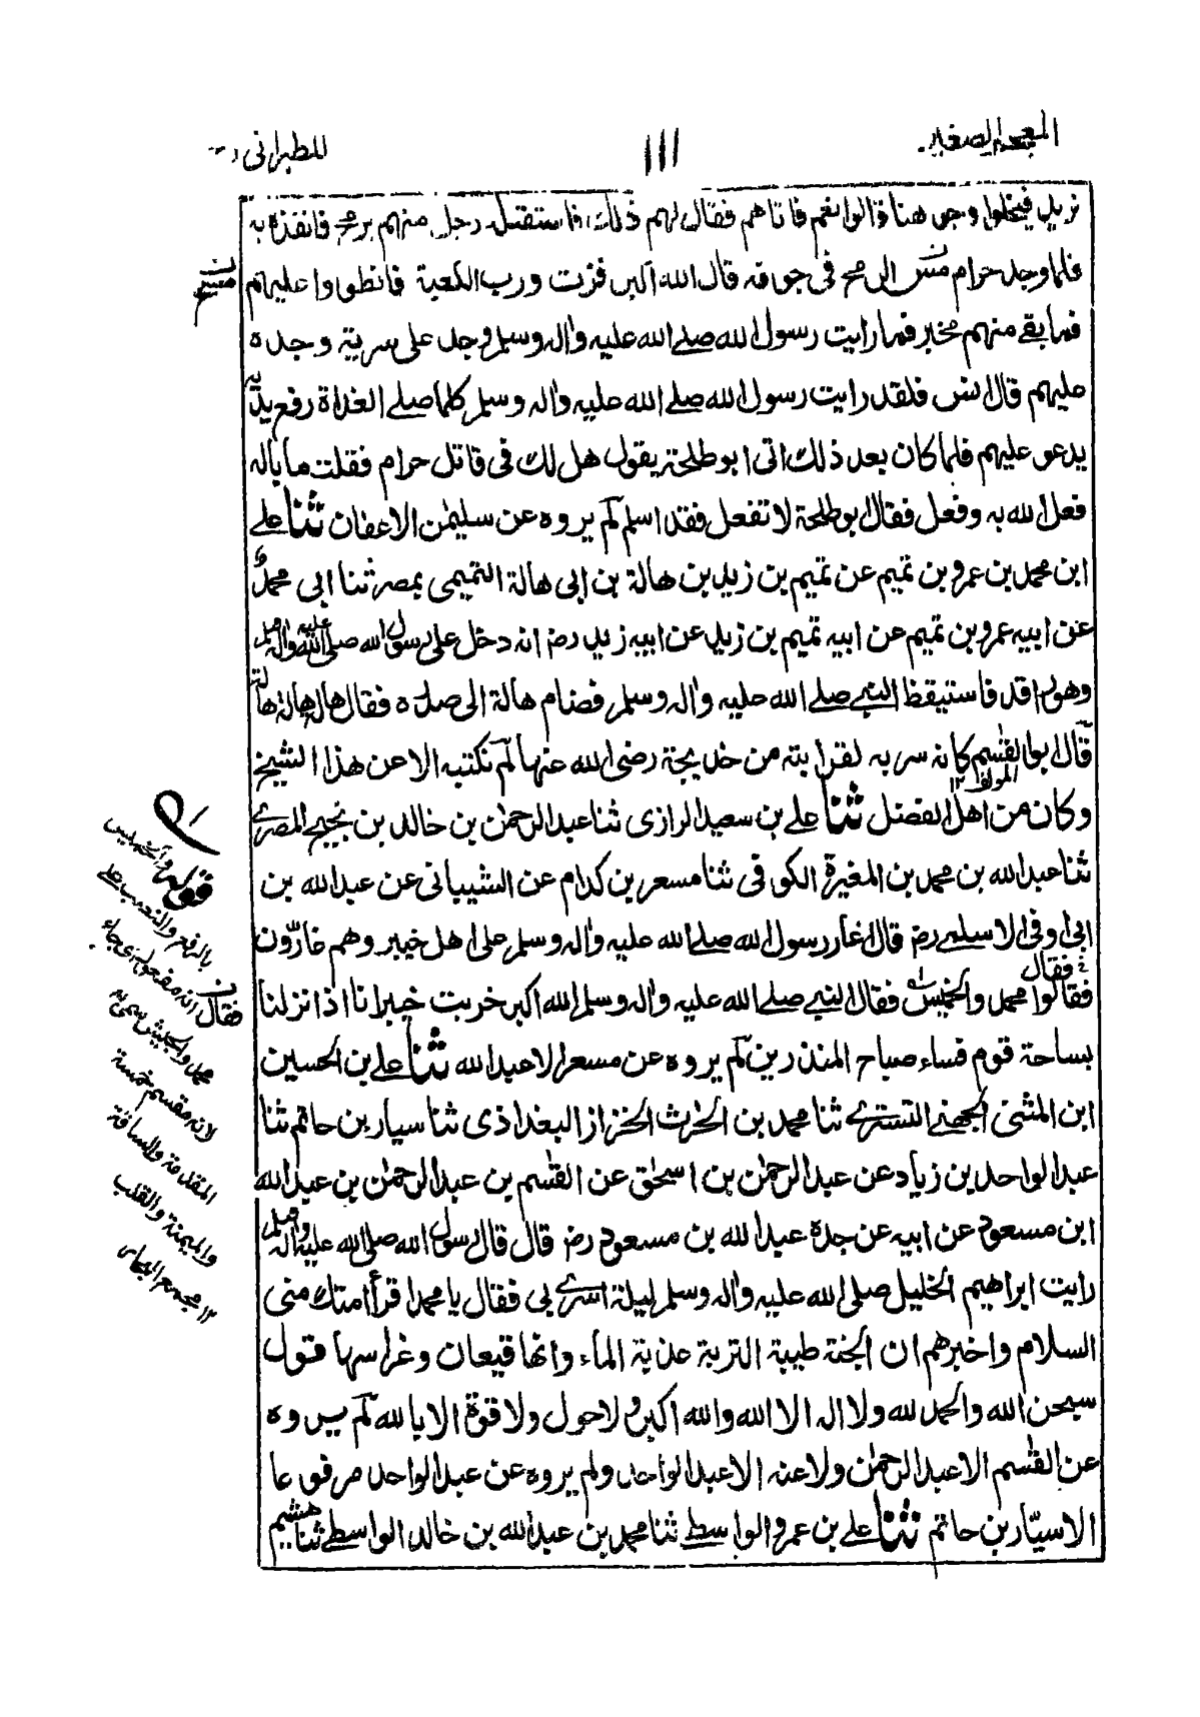 المعجم الصغير
١١١
للطبراني
نريد فيخلوا وجوهنا قالوا نعم فاتاهم فقال لهم ذلك فاستقبل رجل منهم برمح فانفذه به
فلما وجد حرام مس الرمح في جوفه قال الله اكبر فزت ورب الكعبة فانطووا عليهم
فما بقي منهم مخبر فما رايت رسول الله صلے الله عليه واله وسلم وجد على سرية وجده
عليهم قال انس فلقد رايت رسول الله صلے الله عليه واله وسلم كلما صلے الغداة رفع يديه
يدعو عليهم فلما كان بعد ذلك اتى ابو طلحة يقول هل لك في قاتل حرام فقلت ما باله
فعل الله به وفعل فقال ابو طلحة لا تفعل فقد اسلم لم يروه عن سليمٰن الا عفان ثنا علے
ابن محمد بن عمرو بن تميم عن تميم بن زيد بن هالة بن ابى هالة التميمى بمصر ثنا ابى محمد
عن ابيه عمرو بن تميم عن ابيه تميم بن زيد عن ابيه زيد رضـ انه دخل على رسول الله صلى الله عليه واله وسلم
وهو راقد فاستيقظ النبي صلے الله عليه واله وسلم فضم هالة الى صدره فقال هالة هالة هالة
قال ابو القٰسم كانه سر به لقرابته من خديجة رضى الله عنها لم نكتبه الا عن هذا الشيخ
المؤلف ١٢
وكان من اهل الفضل ثنا علے بن سعيد الرازى ثنا عبد الرحمٰن بن خالد بن نجيح المصرے
ثنا عبد الله بن محمد بن المغيرة الكوفى ثنا مسعر بن كدام عن الشيبانى عن عبد الله بن
ابى اوفى الاسلمے رضـ قال اغار رسول الله صلے الله عليه واله وسلم على اهل خيبر وهم غارّون
فقال
فقالوا محمد والخميس فقال النبي صلے الله عليه واله وسلم الله اكبر خربت خيبر انا اذا نزلنا
بساحة قوم فساء صباح المنذرين لم يروه عن مسعر الا عبد الله ثنا علے بن الحسين
ابن المثنى الجهنے التسترے ثنا محمد بن الحٰرث الخزاز البغداذى ثنا سيار بن حاتم ثنا
عبد الواحد بن زياد عن عبد الرحمٰن بن اسحٰق عن القٰسم بن عبد الرحمٰن بن عبد الله
ابن مسعود عن ابيه عن جده عبد الله بن مسعود رضـ قال قال رسول الله صلى الله عليه واله وسلم
رايت ابراهيم الخليل صلى الله عليه واله وسلم ليلة اسرے بى فقال يا محمد اقرأ امتك منى
السلام واخبرهم ان الجنة طيبة التربة عذبة الماء وانها قيعان وغراسها قول
سبحٰن الله والحمد لله ولا اله الا الله والله اكبر ولا حول ولا قوة الا بالله لم يروه
عن القٰسم الا عبد الرحمٰن ولا عنه الا عبد الواحد ولم يروه عن عبد الواحد مرفوعا
الا سيّار بن حاتم ثنا علے بن عمرو الواسطے ثنا محمد بن عبد الله بن خالد الواسطے ثنا هشيم
قوله والخميس
بالرفع والنصب على
انه مفعول اى جاء
محمد والجيش سمى به
لانه مقسم خمسة
المقدمة والساقة
والميمنة والقلب
١٢ مجمع البحار